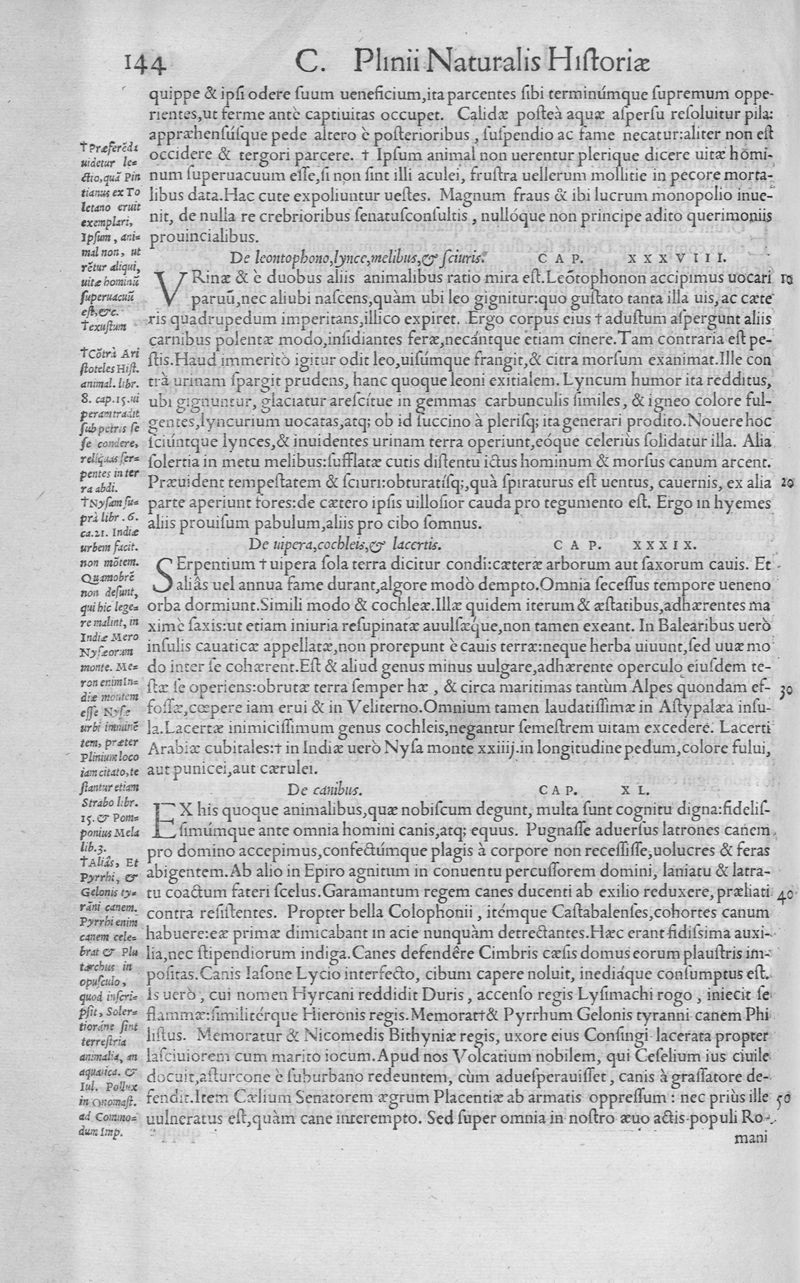 144 C. Plinii Naturalis Hiſtoriæ
quippe & ipſi odere ſuum ueneficium,ita parcentes ſibi terminúmque ſupremum oppe-
rientes,ut ferme antè captiuitas occupet. Calidæ poſteà aquæ aſperſu reſoluitur pila:
appræhenſúſque pede altero è poſterioribus, ſuſpendio ac fame necatur:aliter non eſt
occidere & tergori parcere. † Ipſum animal non uerentur plerique dicere uitæ homi-
num ſuperuacuum eſſe,ſi non ſint illi aculei, fruſtra uellerum mollitie in pecore morta-
libus data.Hac cute expoliuntur ueſtes. Magnum fraus & ibi lucrum monopolio inue-
nit, de nulla re crebrioribus ſenatuſconſultis, nullóque non principe adito querimoniis
prouincialibus.
De leontophono,lynce,melibus,& ſciuris. CAP. XXXVIII.
VRinæ & è duobus aliis animalibus ratio mira eſt.Leōtophonon accipimus uocari 10
paruū,nec aliubi naſcens,quàm ubi leo gignitur:quo guſtato tanta illa uis,ac cæte
ris quadrupedum imperitans,illico expiret. Ergo corpus eius † aduſtum aſpergunt aliis
carnibus polentæ modo,inſidiantes feræ,necántque etiam cinere.Tam contraria eſt pe-
ſtis.Haud immeritò igitur odit leo,uiſúmque frangit,& citra morſum exanimat.Ille con
trà urinam ſpargit prudens, hanc quoque leoni exitialem. Lyncum humor ita redditus,
ubi gignuntur, glaciatur areſcítue in gemmas carbunculis ſimiles, & igneo colore ful-
gentes,lyncurium uocatas,atq; ob id ſuccino à pleriſq; ita generari prodito.Nouere hoc
ſciúntque lynces,& inuidentes urinam terra operiunt,eóque celeriùs ſolidatur illa. Alia
ſolertia in metu melibus:ſufflatæ cutis diſtentu ictus hominum & morſus canum arcent.
Præuident tempeſtatem & ſciuri:obturatíſq;,quà ſpiraturus eſt uentus, cauernis, ex alia 20
parte aperiunt fores:de cætero ipſis uilloſior cauda pro tegumento eſt. Ergo in hyemes
aliis prouiſum pabulum,aliis pro cibo ſomnus.
De uipera,cochleis,& lacertis. CAP. XXXIX.
SErpentium † uipera ſola terra dicitur condi:cæteræ arborum aut ſaxorum cauis. Et
aliâs uel annua fame durant,algore modò dempto.Omnia ſeceſſus tempore ueneno
orba dormiunt.Simili modo & cochleæ.Illæ quidem iterum & æſtatibus,adhærentes ma
ximè ſaxis:ut etiam iniuria reſupinatæ auulſæque,non tamen exeant. In Balearibus uerò
inſulis cauaticæ appellatæ,non prorepunt è cauis terræ:neque herba uiuunt,ſed uuæ mo
do inter ſe cohærent.Eſt & aliud genus minus uulgare,adhærente operculo eiuſdem te-
ſtæ ſe operiens:obrutæ terra ſemper hæ, & circa maritimas tantùm Alpes quondam ef- 30
foſſæ,cœpere iam erui & in Veliterno.Omnium tamen laudatiſſimæ in Aſtypalæa inſu-
la.Lacertæ inimiciſſimum genus cochleis,negantur ſemeſtrem uitam excedere. Lacerti
Arabiæ cubitales:† in Indiæ uerò Nyſa monte xxiiij.in longitudine pedum,colore fului,
aut punicei,aut cærulei.
De canibus. CAP. XL.
EX his quoque animalibus,quæ nobiſcum degunt, multa ſunt cognitu digna:fideliſ-
ſimúmque ante omnia homini canis,atq; equus. Pugnaſſe aduerſus latrones canem
pro domino accepimus,confectúmque plagis à corpore non receſſiſſe,uolucres & feras
abigentem.Ab alio in Epiro agnitum in conuentu percuſſorem domini, laniatu & latra-
tu coactum fateri ſcelus.Garamantum regem canes ducenti ab exilio reduxere, præliati 40
contra reſiſtentes. Propter bella Colophonii, itémque Caſtabalenſes,cohortes canum
habuere:eæ primæ dimicabant in acie nunquàm detrectantes.Hæc erant fidiſsima auxi-
lia,nec ſtipendiorum indiga.Canes defendêre Cimbris cæſis domus eorum plauſtris im-
poſitas.Canis Iaſone Lycio interfecto, cibum capere noluit, inediáque conſumptus eſt.
Is uerò, cui nomen Hyrcani reddidit Duris, accenſo regis Lyſimachi rogo, iniecit ſe
flammæ:ſimilitérque Hieronis regis.Memorat † & Pyrrhum Gelonis tyranni canem Phi
liſtus. Memoratur & Nicomedis Bithyniæ regis, uxore eius Conſingi lacerata propter
laſciuiorem cum marito iocum.Apud nos Volcatium nobilem, qui Ceſelium ius ciuile
docuit,aſturcone è ſuburbano redeuntem, cùm adueſperauiſſet, canis à graſſatore de-
fendit.Item Cælium Senatorem ægrum Placentiæ ab armatis oppreſſum: nec priùs ille 50
uulneratus eſt,quàm cane interempto. Sed ſuper omnia in noſtro æuo actis populi Ro-
mani
†Præferēdi
uidetur le=
ctio,quā Pin
tianus ex To
letano eruit
exemplari,
Ipſum, ani=
mal non, ut
rētur aliqui,
uitæ hominū
ſuperuacuū
eſt,&c.
†exuſtum
†Cōtrà Ari
ſtoteles Hiſt.
animal. libr.
8. cap.15.ui
peram tradit
ſub petris ſe
ſe condere,
reliquas ſer=
pentes in ter
ra abdi.
†Nyſam ſu=
prà libr. 6.
ca.21. Indiæ
urbem facit.
non mōtem.
Quamobrē
non deſunt,
qui hic lege=
re malint, in
Indiæ Mero
Nyſæorum
monte. Me=
ron enim In=
diæ montem
eſſe Nyſæ
urbi imminē
tem, præter
Plinium loco
iam citato,te
ſtantur etiam
Strabo libr.
15. & Pom=
ponius Mela
lib.3.
†Aliâs, Et
Pyrrhi, &
Gelonis ty=
ranni canem.
Pyrrhi enim
canem cele=
brat & Plu
tarchus in
opuſculo,
quod inſcri=
pſit, Soler=
tioráne ſint
terreſtria
animalia, an
aquatica. &
Iul. Pollux
in Onomaſt.
ad Commo=
dum Imp.